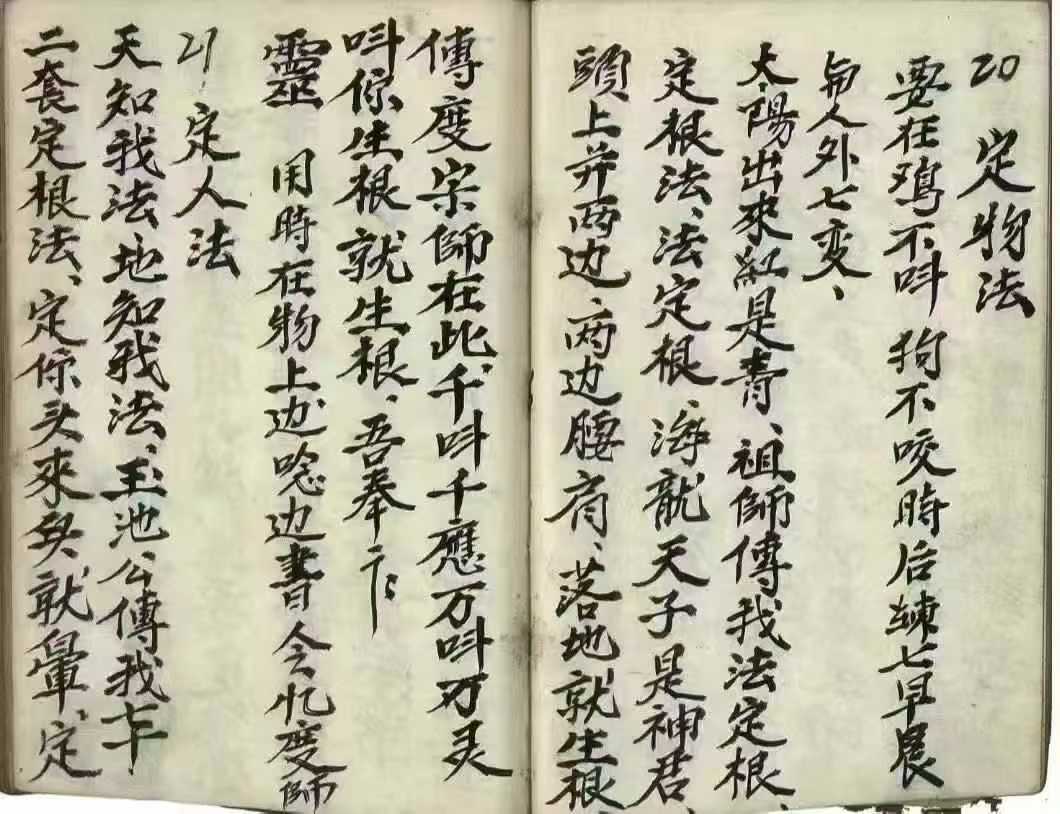 20 定物法
要在鸡不叫狗不咬時后練七早晨
七变、
太陽出來紅是青、祖師傳我法定根、
定根法、法定根、海龍天子是神君、
頭上并两边、两边腰肩、落地就生根、
傳度宗師在此、千叫千應万叫万灵
叫你生根就生根、吾奉
靈 用時在物上边唸边書令忆度師
21 定人法
天知我法、地知我法、玉池公傳我
二套定根法、定你头來就暈、定